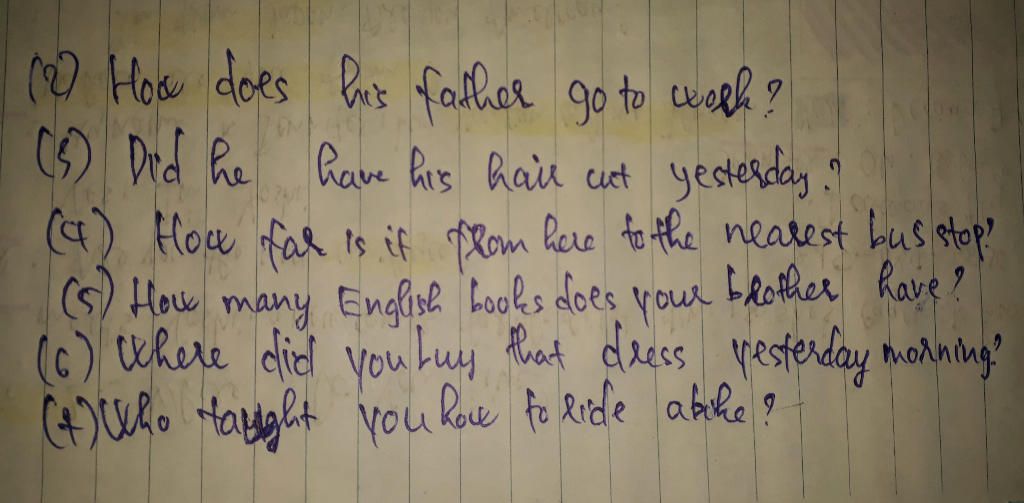 (2) How does his father go to work?
(3) Did he have his hair cut yesterday?
(4) How far is it from here to the nearest bus stop?
(5) How many English books does your brother have?
(6) Where did you buy that dress yesterday morning?
(7) Who taught you how to ride abike?